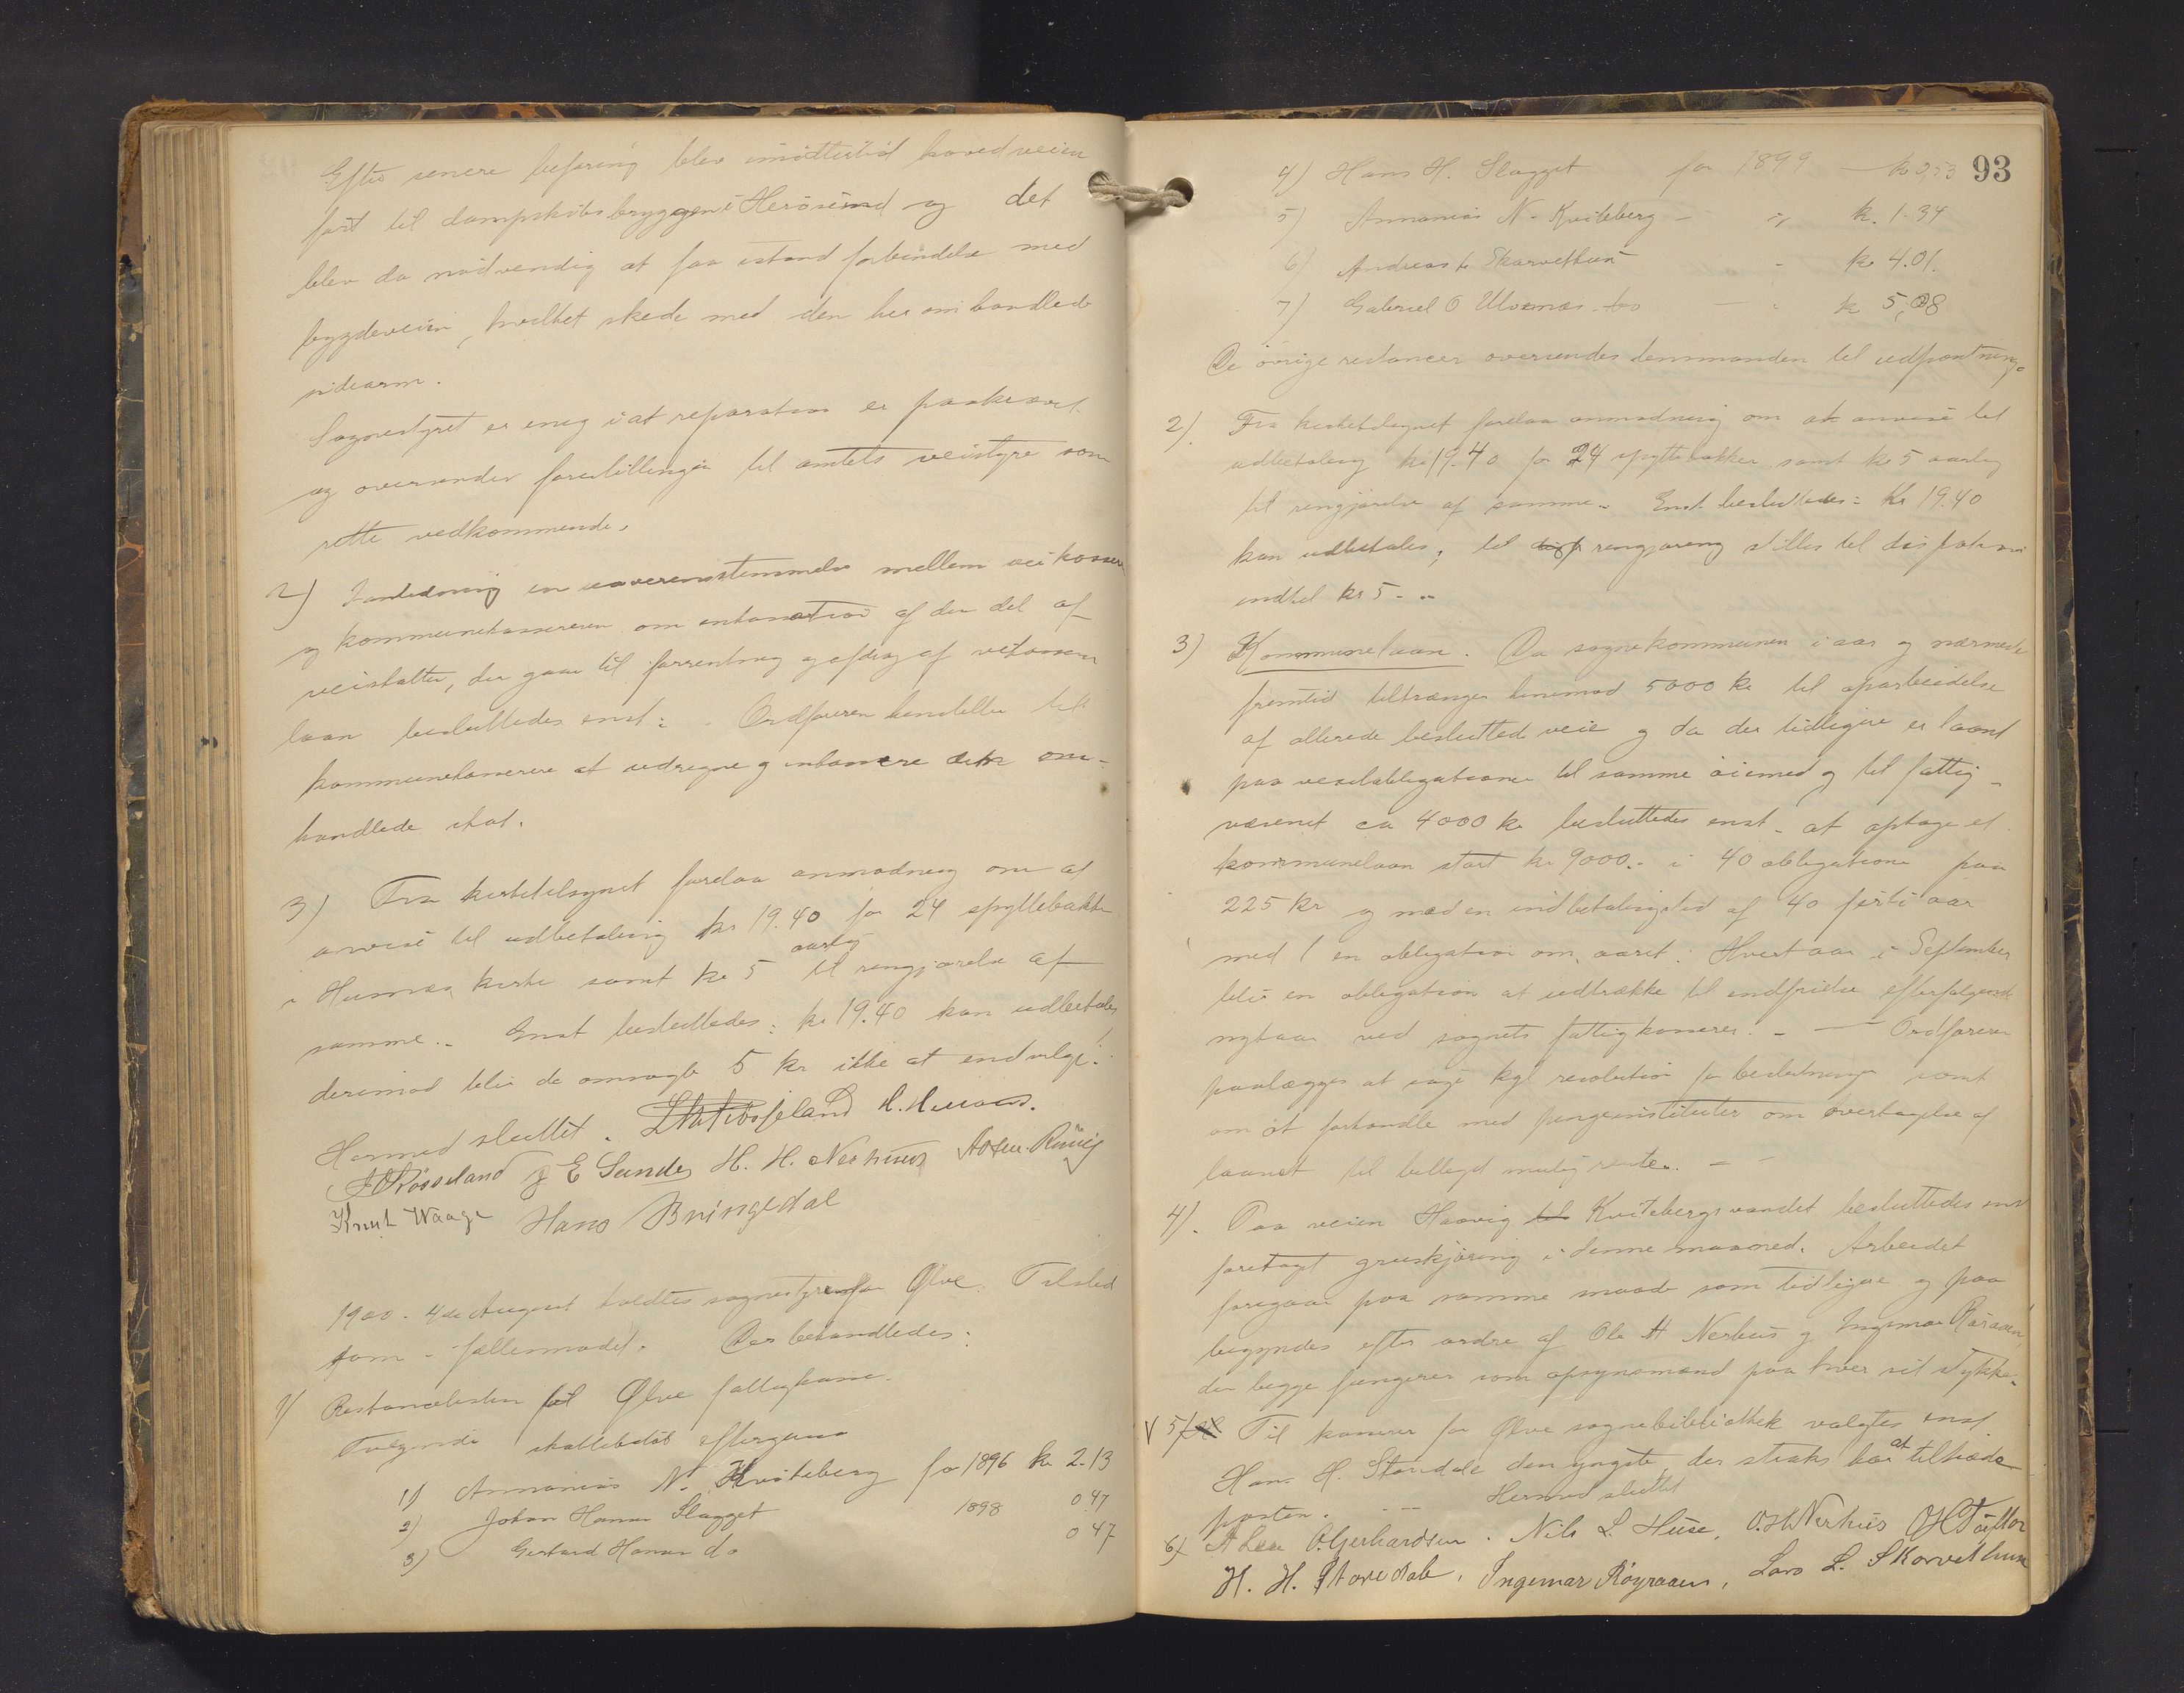 Efter senere befaring blev imidlertid hovedveien
ført til dampskibsbryggen i Herøsund og det
blev da nødvendig at faa istand forbindelse med
bygdeveien, hvilket skede med den her omhandlede
sidearm.
Sognestyret er enig i at reparation er paakrævet
og oversender forestillingen til amtets veistyre som
rette vedkommende.
2) I anledning en uoverensstemmelse mellem
og kommunekassereren om inkassation af den del af
veiskatten, der gaar til forrentning og afdrag af
laan besluttedes enst: - Ordføreren henstiller til
kommunekasserere at udregne og inkassere den om-
handlede skat.
3) Fra kirketilsynet forelaa anmodning om at
anvise til udbetaling kr 19.40 for 24 spyttebakker
i Husnes kirke samt kr 5 aarlig til rengjørelse af
samme. - Enst besluttedes: kr 19.40 kan udbetales
derimod blir de omsøgte 5 kr ikke at indvilge.
Hermed sluttet. H. Husnes.
Røsseland E Sunde H. H. Neshuus
Knut Waage Hans Bringedal
1900 - 4de August holdtes sognestyre for Ølve. Tilsted
som i fællesmødet. Der behandledes:
1) Restancelisten til Ølve fattigkasse.
Følgende skattebeløb eftergives
1) Annanias N. Kviteberg for 1896 kr 2.13
2) Johan Hansen Slagget 1898 0.47
3) Gerhard Hansen do 0 47
93
4) Hans H. Slagget for 1899 - kr 0,53
5) Annanias N. Kviteberg - " k. 1.34
6) Andreas Skarvethun - kr 4.01.
7) Gabriel O Ulvenæs - kr 5,08
De øvrige restancer oversendes lensmanden til udpantning.
2) Fra kirketilsynet forelaa anmodning om at anvise til
udbetaling kr 19.40 for 24 spyttebakker samt kr 5 aarlig
til rengjørelse af samme - Enst besluttedes: Kr 19.40
kan udbetales; til rengjøring stilles til disposition
indtil kr 5 -
3) Kommunelaan. Da sognekommunen i aar og nærmeste
fremtid tiltrænger henimod 5000 kr til oparbeidelse
af allerede besluttede veie og da der tidligere er laant
paa vexelobligationer til samme øiemed og til fattig-
væsenet ca 4000 kr besluttedes enst. at optage et
kommunelaan stort kr 9000.- i 40 obligationer paa
225 kr og med en indbetalingstid af 40 førti aar
med 1 en obligation om aaret. Hvert aar i September
blir en obligation at udtrække til indfrielse efterfølgende
nytaar ved sognets fattigkasserer. - Ordføreren
paalægges at søge kgl resolution for beslutningen samt
om at forhandle med pengeinstituter om overtagelse af
laanet til billigst mulig rente. -
4). Paa veien Haavig til Kvitebergsvandet besluttedes enst
foretaget gruskjøring i denne maaned. Arbeidet
foregaar paa samme maade som tidligere og paa
begyndes efter ordre af Ole H Nerhus og Ingemar Røiraaen
der begge fungerer som opsynsmænd paa hver sit stykke.
V 5) Til kasserer for Ølve sognebibliothek valgtes enst
Hans H. Storedale den yngste, der straks har at tiltræde
posten. Hermed sluttet
6) A Lea O. Gerhardsen. Nils L. Huse, O. H. Nerhus
H. H. Storedale, Ingemar Røyraaen, Lars L. Skorvethun